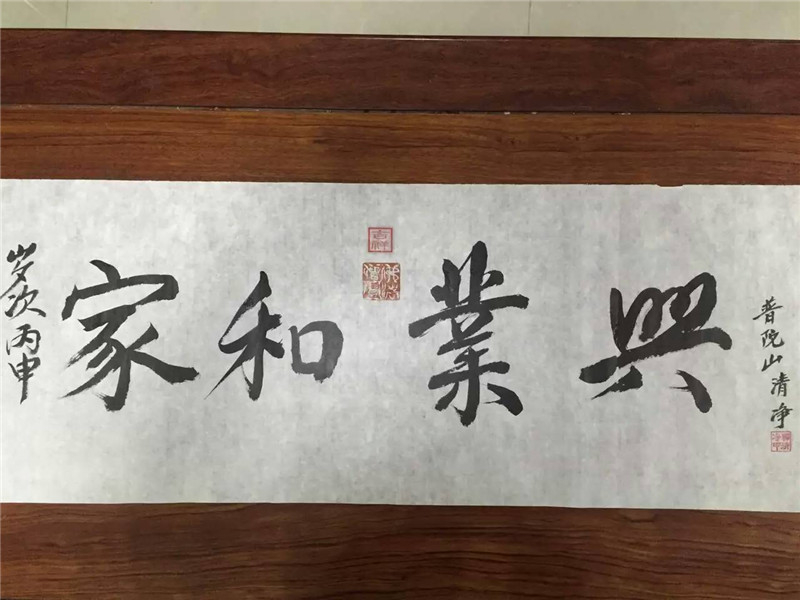 岁次丙申
家和業興
普陀山清净
吉祥